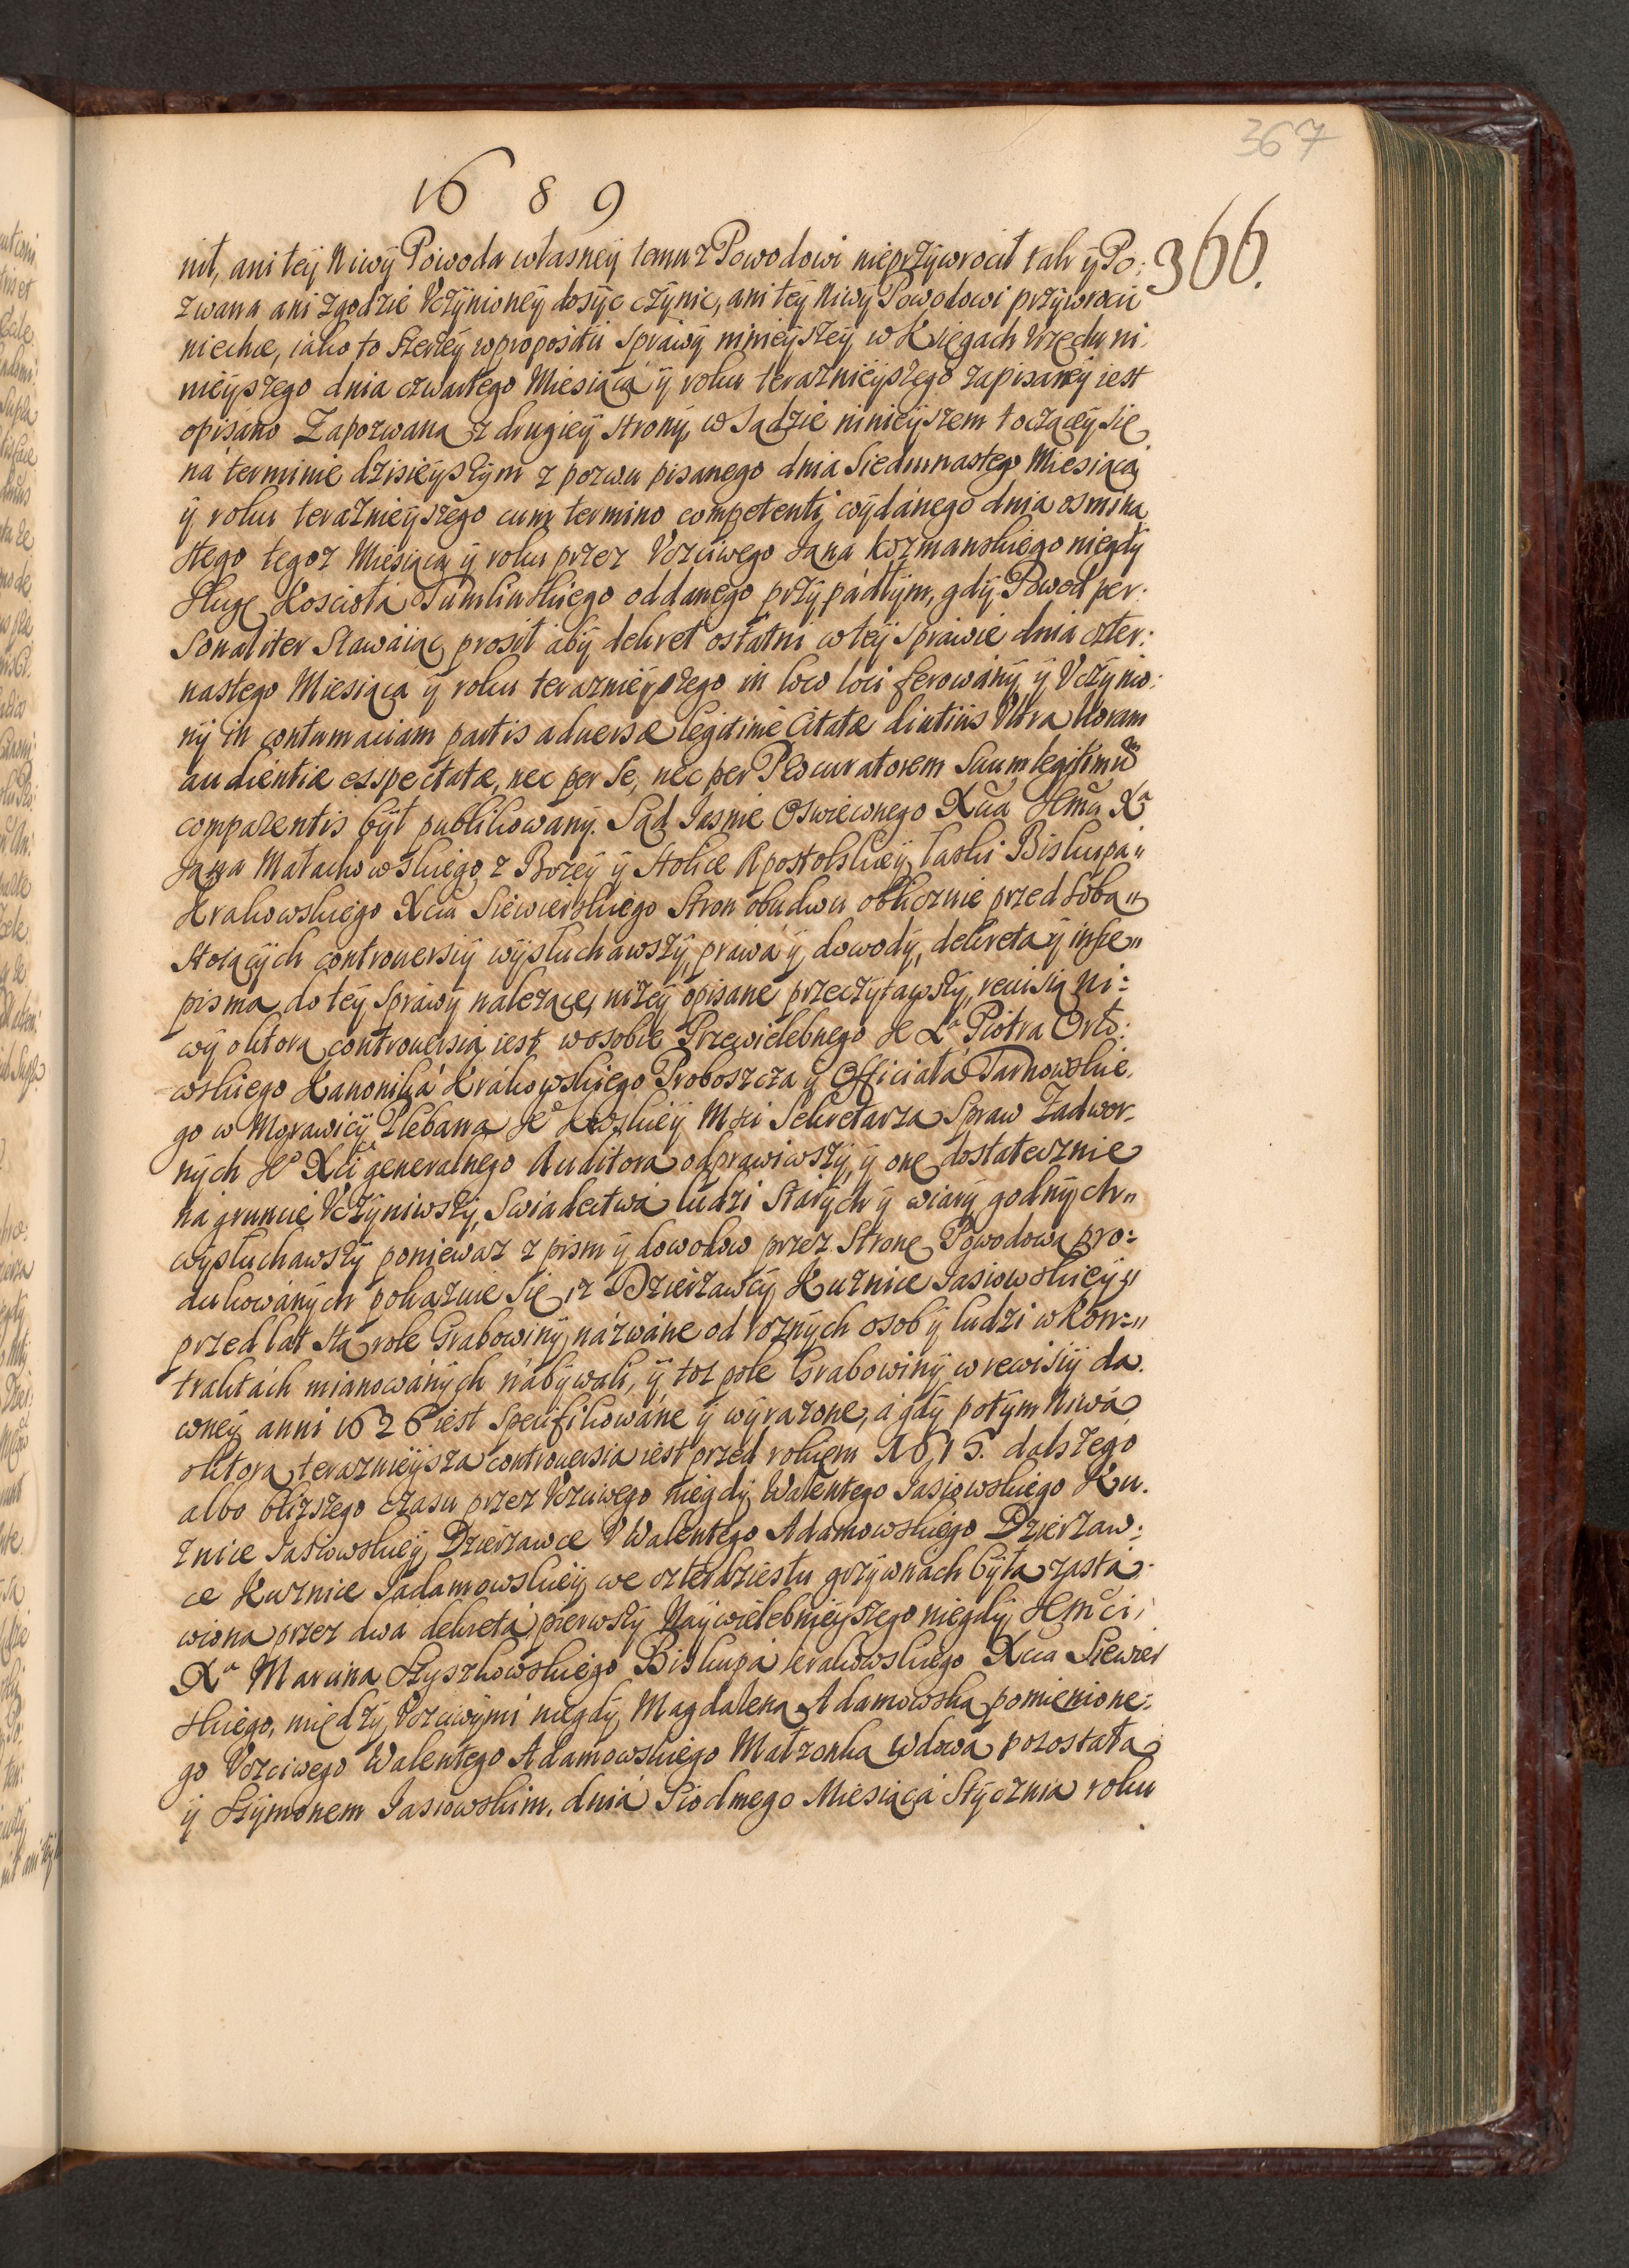 367
1689
366.
nił, ani tey Niwÿ Powoda własneÿ temuz Powodowi nieprzÿwrocił tak ÿ Po:
zwana ani zgodzie Vczÿnioneÿ dosÿc czÿnic, ani teÿ Niwÿ Powodowi przÿwrocic
niechce, iako to szerzeÿ w propositii sprawÿ ninieÿszeÿ w Księgach Vrzędu ni:
nieÿszego dnia czwartego Miesiąca ÿ roku teraznieÿszego zapisaneÿ iest
opisano Zapozwaną z drugieÿ stronÿ, w Sądzie ninieÿszem toczącÿ się
na terminie dzisieÿszÿm z pozwu pisanego dnia Siedmnastego Miesiąca
ÿ roku teraznieÿszego cum termino competenti wÿdanego dnia osmna
stego tegoz Miesiąca ÿ roku przez Vczciwego Jana Kozmanskiego niegdÿ
sługę Koscioła Tumlinskiego oddanego przÿpadłÿm, gdÿ Powod per:
sonaliter Stawaiąc prosił abÿ dekret ostatni w teÿ sprawie dnia czter:
nastego Miesiąca ÿ roku teraznieÿszego in loco loci ferowanÿ ÿ Vczÿnio:
nÿ in contumaciam partis aduersæ legitime Citatæ diutius Vltra horam
audientiæ exspectatæ, nec per se, nec per Procuratorem Suum legitimum
comparentis bÿł publikowanÿ. Sąd Jasnie Oswieconego Xcia Jmci Xa
Jana Małachowskiego z Bozeÿ ÿ Stolice Apostolskieÿ łaski Biskupa
Krakowskiego Xcia Siewierskiego Stron obudwu oblicznie przed sobą
stoiącÿch controuersiÿ wÿsłuchawszÿ, prawa ÿ dowodÿ, dekreta ÿ insze
pisma do teÿ sprawÿ nalezące, nizeÿ opisane przeczÿtawszÿ, reuisią Ni:
wÿ o ktorą controuersia iest w osobie Przewielebnego Je Xa Piotra Orło:
wskiego Kanonika Krakowskiego Proboszcza ÿ Officiała Tarnowskie.
go w Morawicÿ Plebana Je Krolskieÿ Msci Sekretarza Spraw Zadwor
nÿch Je Xci generalnego Auditora odprawiwszÿ, ÿ onę dostatecznie
na gruncie Vczÿniwszÿ, Swiadectwa ludzi Starÿch ÿ wiarÿ godnÿch
wÿsłuchawszÿ poniewaz z pism ÿ dowodow przez Stronę Powodową pro:
dukowanÿch pokazuie się, iz Dzierzawcÿ Kuznice Jasiowskieÿ
przed lat stą role Grabowinÿ nazwane od roznÿch osob ÿ ludzi w Kon:
traktach mianowanÿch nabÿwali, ÿ toz pole Grabowinÿ w rewisiÿ da
wneÿ anni 1626 iest specifikowane ÿ wÿrazone, a gdÿ potÿm Niwa
o ktorą teraznieÿsza controuersia iest przed rokiem 1615. dalszego
albo blizszego czasu przez Vczciwego niegdÿ Walentego Jasiowskiego Ku.
znice Jasiowskieÿ Dzierzawce V Walentego Adamowskiego Dzierzaw:
ce Kuznice Jadamowskieÿ we czterdziestu grzÿwnach bÿła zasta:
wiona przez dwa dekreta pierwszÿ Naÿwielebnieÿszego niegdÿ Jmci
Xa Marcina Szyszkowskiego Biskupa krakowskiego Xcia Siewier
skiego, międzÿ Vczciwÿmi niegdÿ Magdaleną Adamowską pomienione:
go Vczciwego Walentego Adamowskiego Małzonką wdową pozostałą
ÿ Szÿmonem Jasiowskim. dnia Siodmego Miesiąca Stÿcznia roku